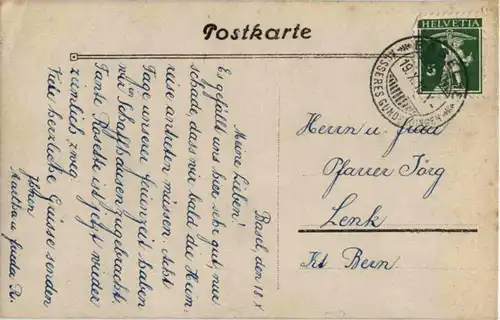 Postkarte
HELVETIA
5
BASEL
ÄUSSERES GUNDELDINGEN
19.X.
Basel, den 18 X
Meine Lieben!
Es gefällt uns hier sehr gut, nur
schade, dass wir bald die Heim-
reise antreten müssen. Acht
Tage unserer Ferienzeit haben
wir in Schaffhausen zugebracht.
Tante Rosette ist jetzt wieder
ziemlich zwäg.
Viele herzliche Grüsse senden
Ihnen
Martha u. Frieda R.
Herrn u. Frau
Pfarrer Jörg
Lenk
Kt. Bern